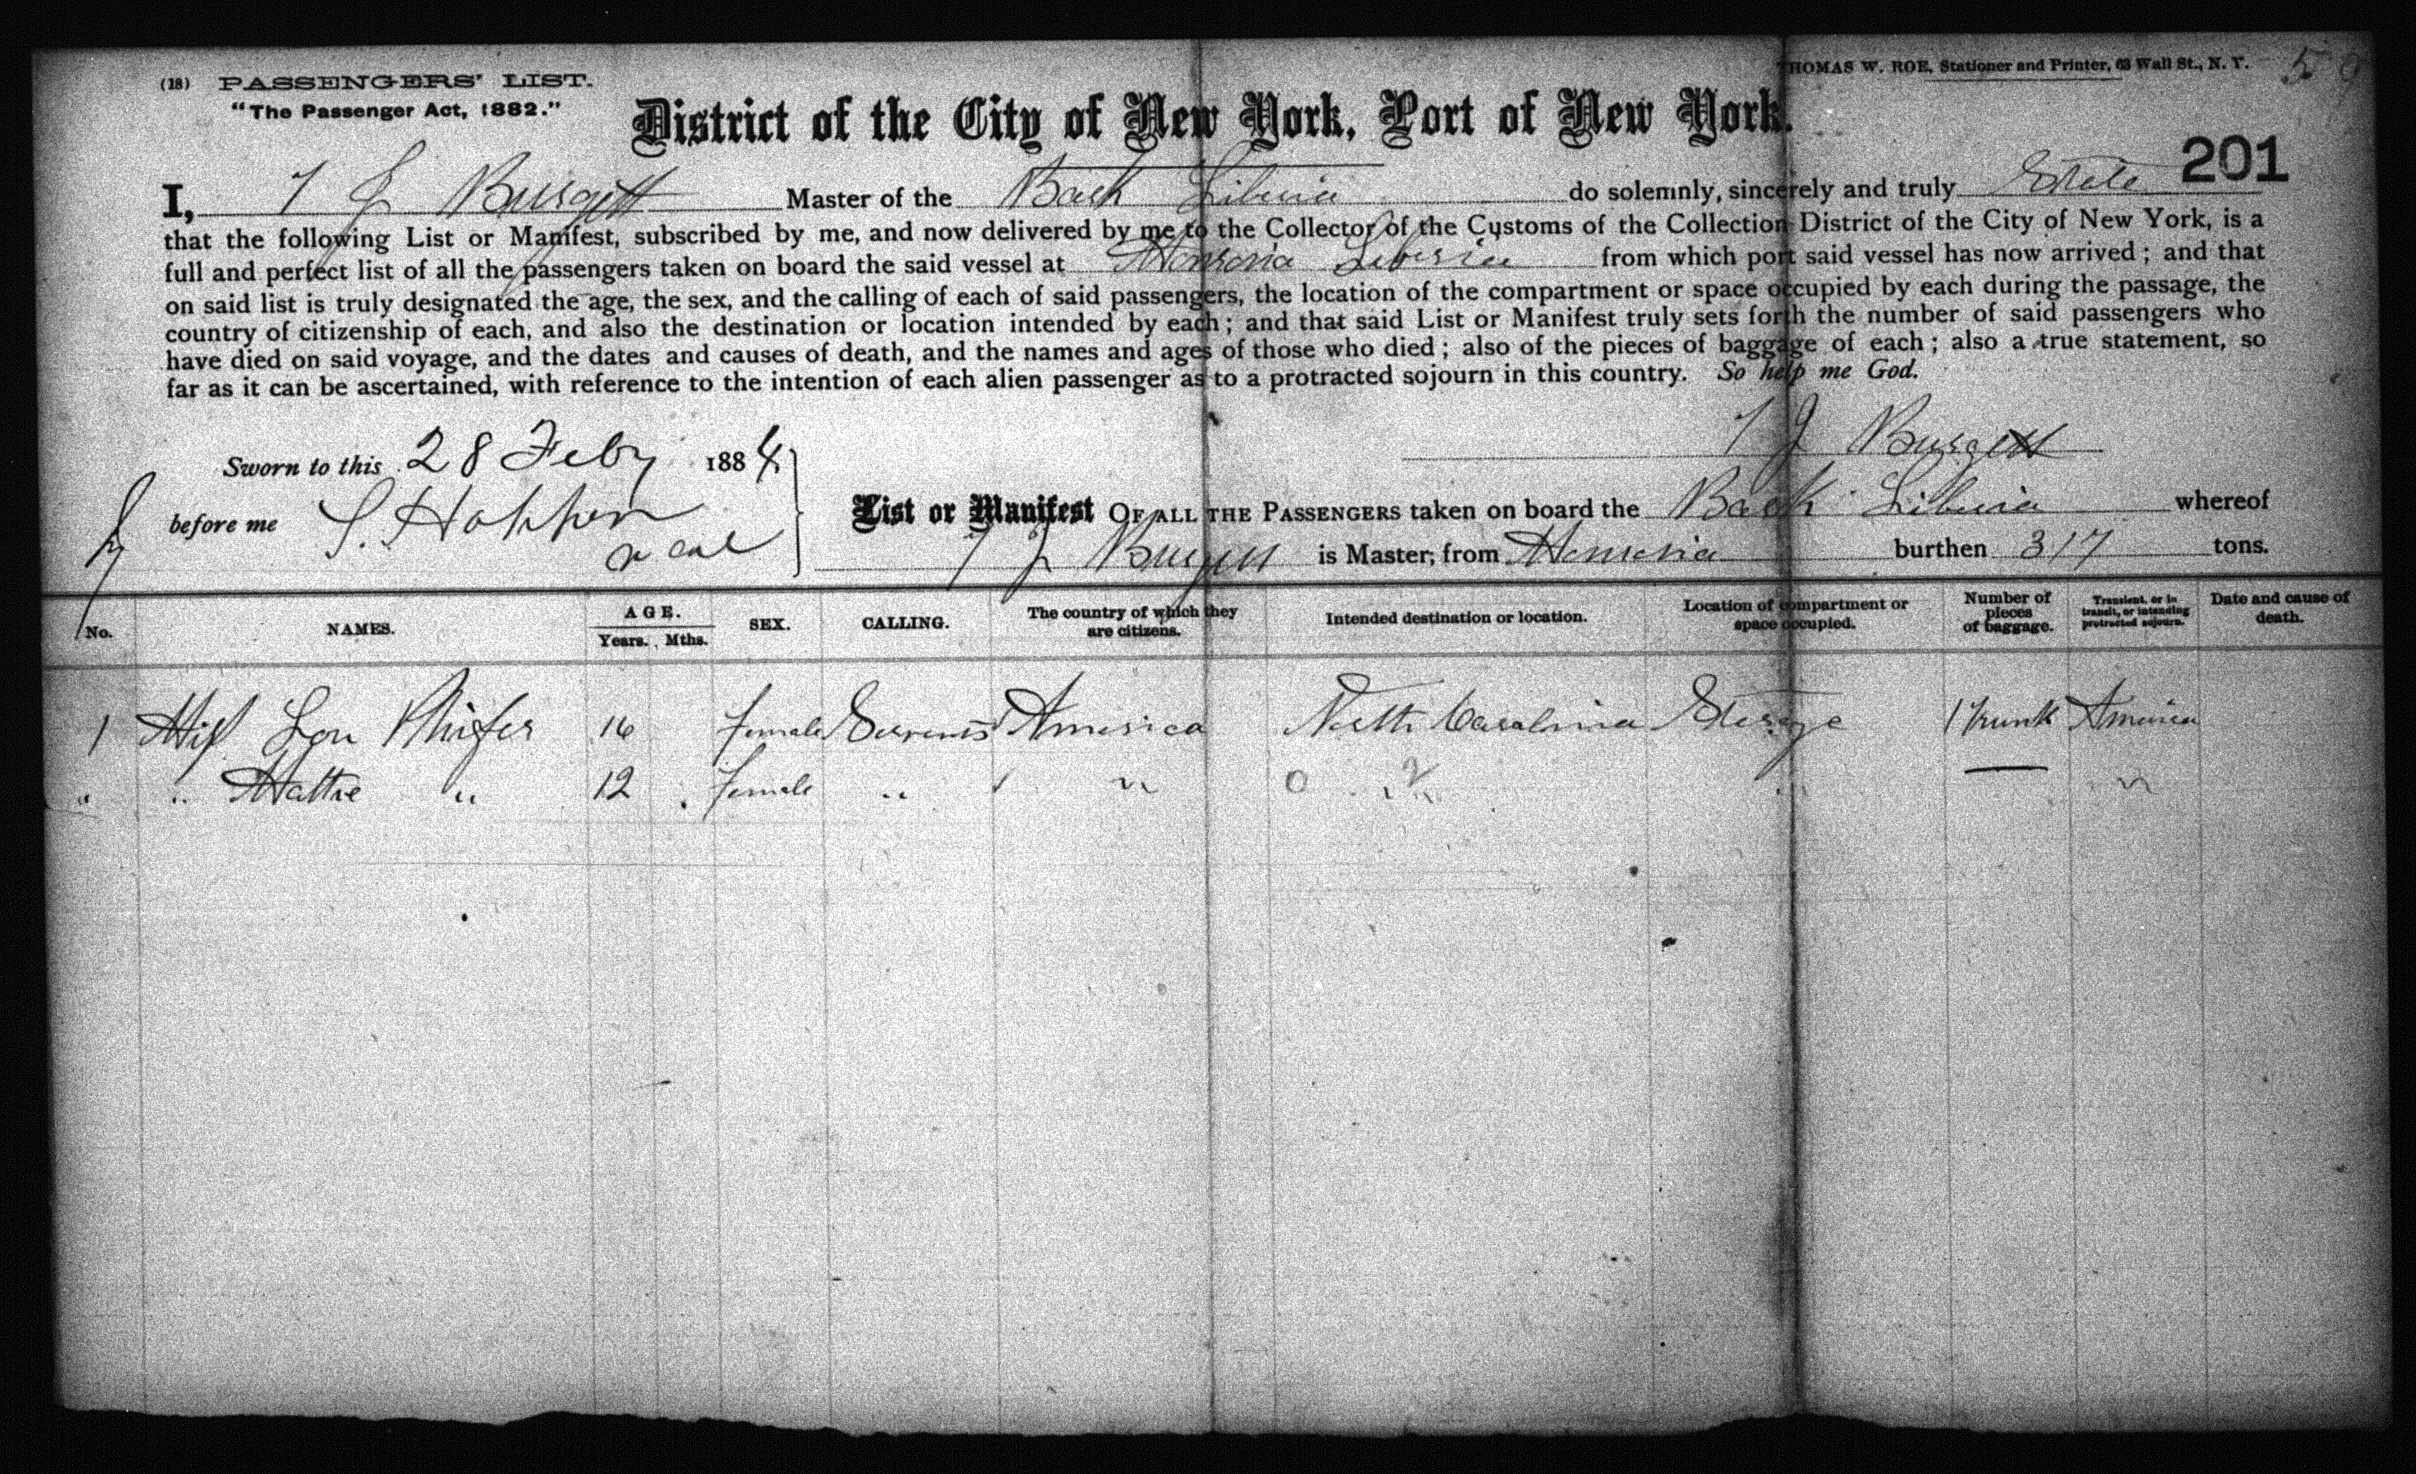 (18) PASSENGERS' LIST.
THOMAS W. ROE, Stationer and Printer, 63 Wall St., N. Y. 59
"The Passenger Act, 1882."
District of the City of New York, Port of New York.
201
I, J Burgett Master of the Bark Liberia do solemnly, sincerely and truly State
that the following List or Manifest, subscribed by me, and now delivered by me to the Collector of the Customs of the Collection District of the City of New York, is a
full and perfect list of all the passengers taken on board the said vessel at Monrovia Liberia from which port said vessel has now arrived; and that
on said list is truly designated the age, the sex, and the calling of each of said passengers, the location of the compartment or space occupied by each during the passage, the
country of citizenship of each, and also the destination or location intended by each; and that said List or Manifest truly sets forth the number of said passengers who
have died on said voyage, and the dates and causes of death, and the names and ages of those who died; also of the pieces of baggage of each; also a true statement, so
far as it can be ascertained, with reference to the intention of each alien passenger as to a protracted sojourn in this country. So help me God.
J Burgett
Sworn to this 28 Feby 1884
before me
List or Manifest OF ALL THE PASSENGERS taken on board the Bark Liberia whereof
J Burgett is Master, from Monrovia burthen 317 tons.
No. NAMES. AGE. Years. Mths. SEX. CALLING. The country of which they are citizens. Intended destination or location. Location of compartment or space occupied. Number of pieces of baggage. Transient, or in transit, or intending protracted sojourn. Date and cause of death.
1 Miss Lou Phifer 16 female Servents America North Carolina Sterage 1 Trunk America
" " Hattie " 12 female " " " — "